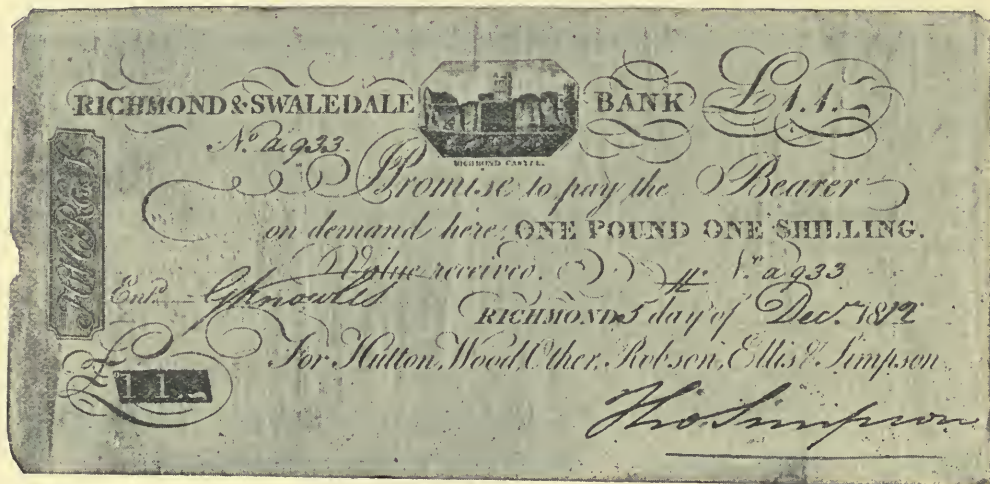 RICHMOND & SWALEDALE BANK £1.1.-
RICHMOND CASTLE.
No. a 933
I Promise to pay the Bearer
on demand here, ONE POUND ONE SHILLING.
Value received. No. a 933
Entd. G Knowles
RICHMOND 5 day of Decr. 1812
For Hutton, Wood, Other, Robson, Ellis & Simpson
£ 1 1.
Tho. Simpson